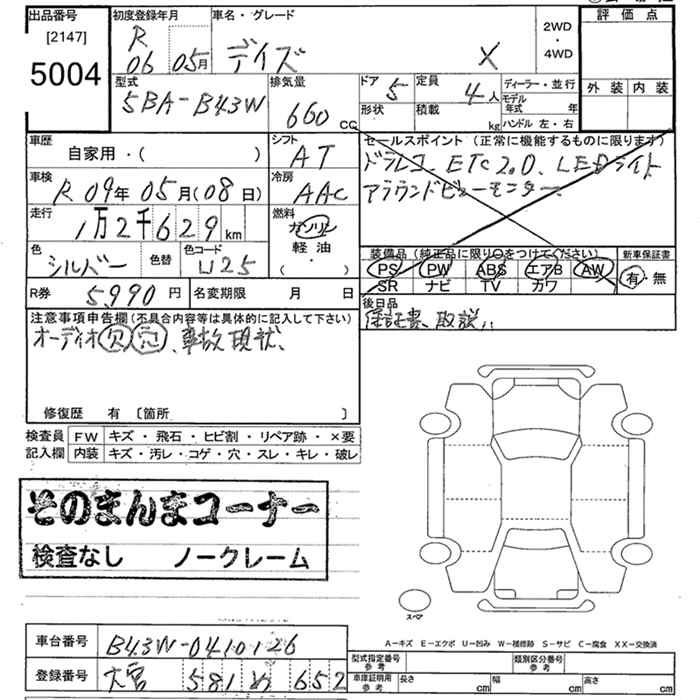 出品番号
[2147]
5004
初度登録年月
R
06 05月
車名・グレード
デイズ X
2WD
・
4WD
評価点
外装 内装
型式
5BA-B43W
排気量
660 cc
ドア 5
定員 4人
形状
積載 kg
ディーラー・並行
モデル年式 年
ハンドル 左・右
車歴
自家用・( )
シフト
AT
セールスポイント (正常に機能するものに限ります)
ドラレコ、ETC2.0、LEDライト
アラウンドビューモニター
車検
R 09年05月(08日)
冷房
AAC
走行
1万2千629km
燃料
ガソリン
軽油・
( )
色
シルバー
色替
色コード
U25
装備品 (純正品に限り○をつけてください)
PS PW ABS エアB AW
SR ナビ TV カワ
新車保証書
有・無
R券 5990円
名変期限 月 日
後日品
保証書、取説、
注意事項申告欄 (不具合内容等は具体的に記入して下さい)
オーディオ欠穴、事故現状、
修復歴 有 〔箇所 〕
検査員
記入欄
FW キズ・飛石・ヒビ割・リペア跡・×要
内装 キズ・汚レ・コゲ・穴・スレ・キレ・破レ
そのまんまコーナー
検査なし ノークレーム
スペア
A-キズ E-エクボ U-凹み W-補修跡 S-サビ C-腐食 XX-交換済
車台番号 B43W-0410126
登録番号 大宮 581 め 652
型式指定番号
参考
類別区分番号
参考
車庫証明用
参考
長さ cm 幅 cm 高さ cm